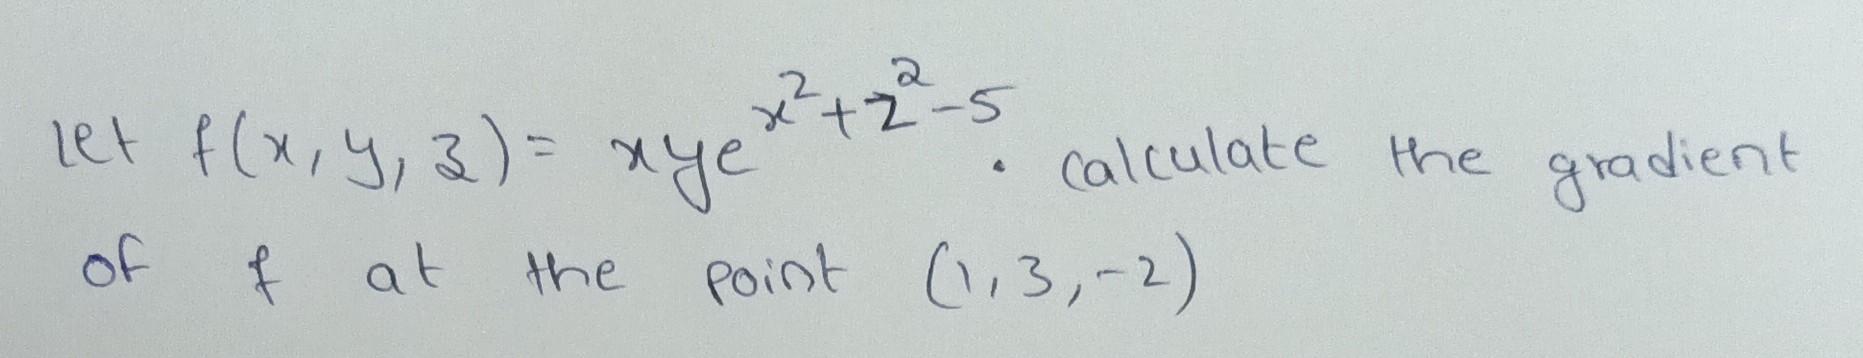 let f(x, y, z) = xye^{x²+z²-5}. calculate the gradient
of f at the point (1, 3, -2)